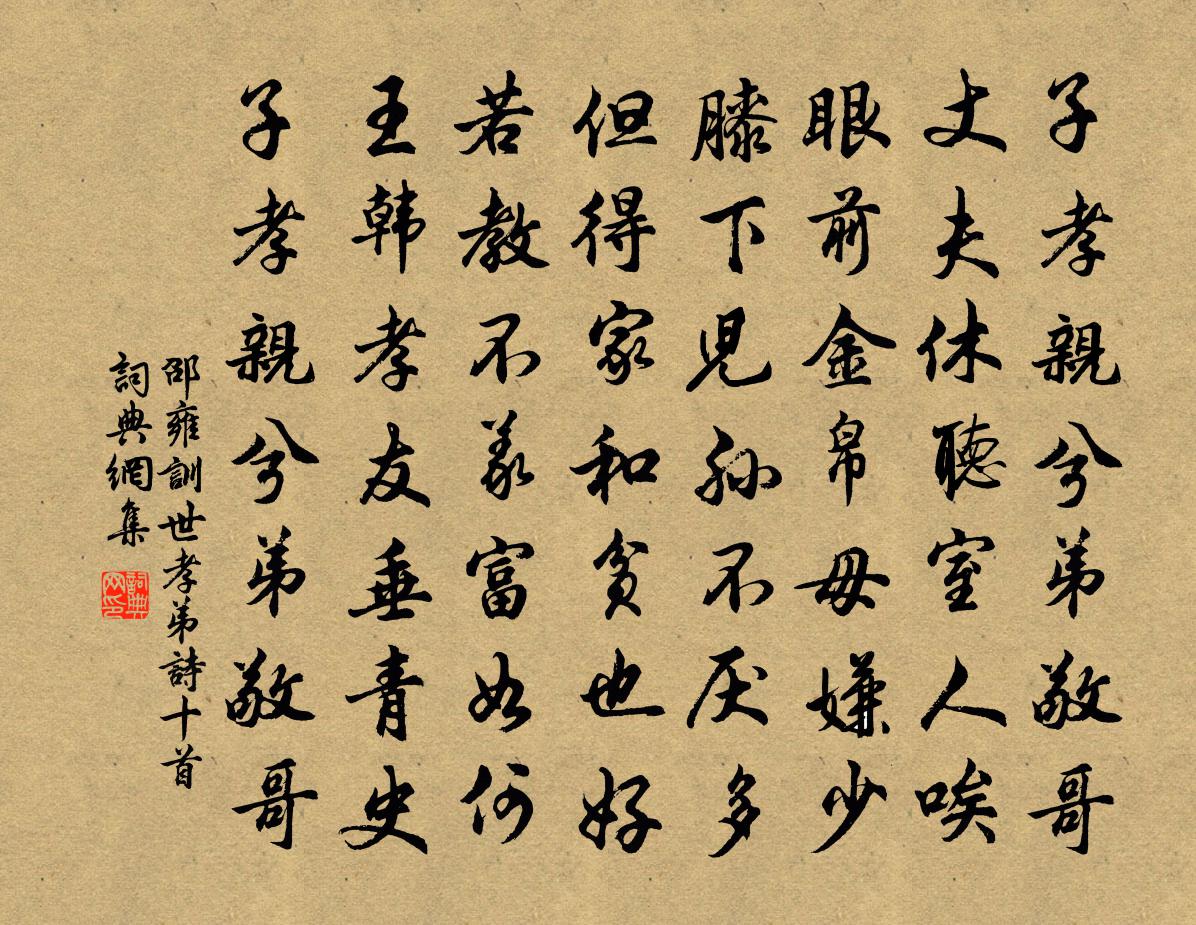 子孝親兮弟敬哥
丈夫休聽室人唆
眼前金帛毋嫌少
膝下児孙不厌多
但得家和貧也好
若教不義富如何
王韩孝友垂青史
子孝親兮弟敬哥
邵雍訓世孝弟詩十首
詞典網集
詞典网印